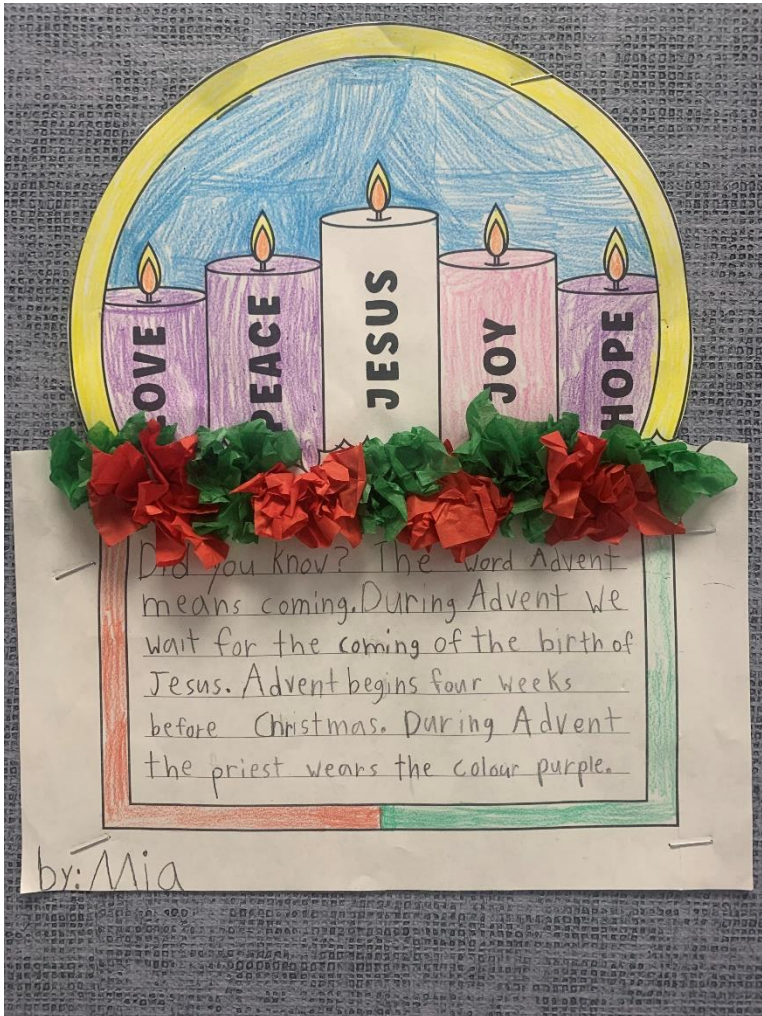 LOVE
PEACE
JESUS
JOY
HOPE
Did you know? The word Advent
means coming. During Advent we
wait for the coming of the birth of
Jesus. Advent begins four weeks
before Christmas. During Advent
the priest wears the colour purple.
by: Mia